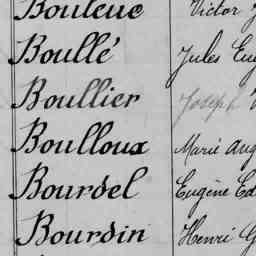 Bouleuc Victor
Boullé Jules Eug
Boullier Joseph
Boulloux Marie Aug
Bourdel Eugène Ed
Bourdin Henri G